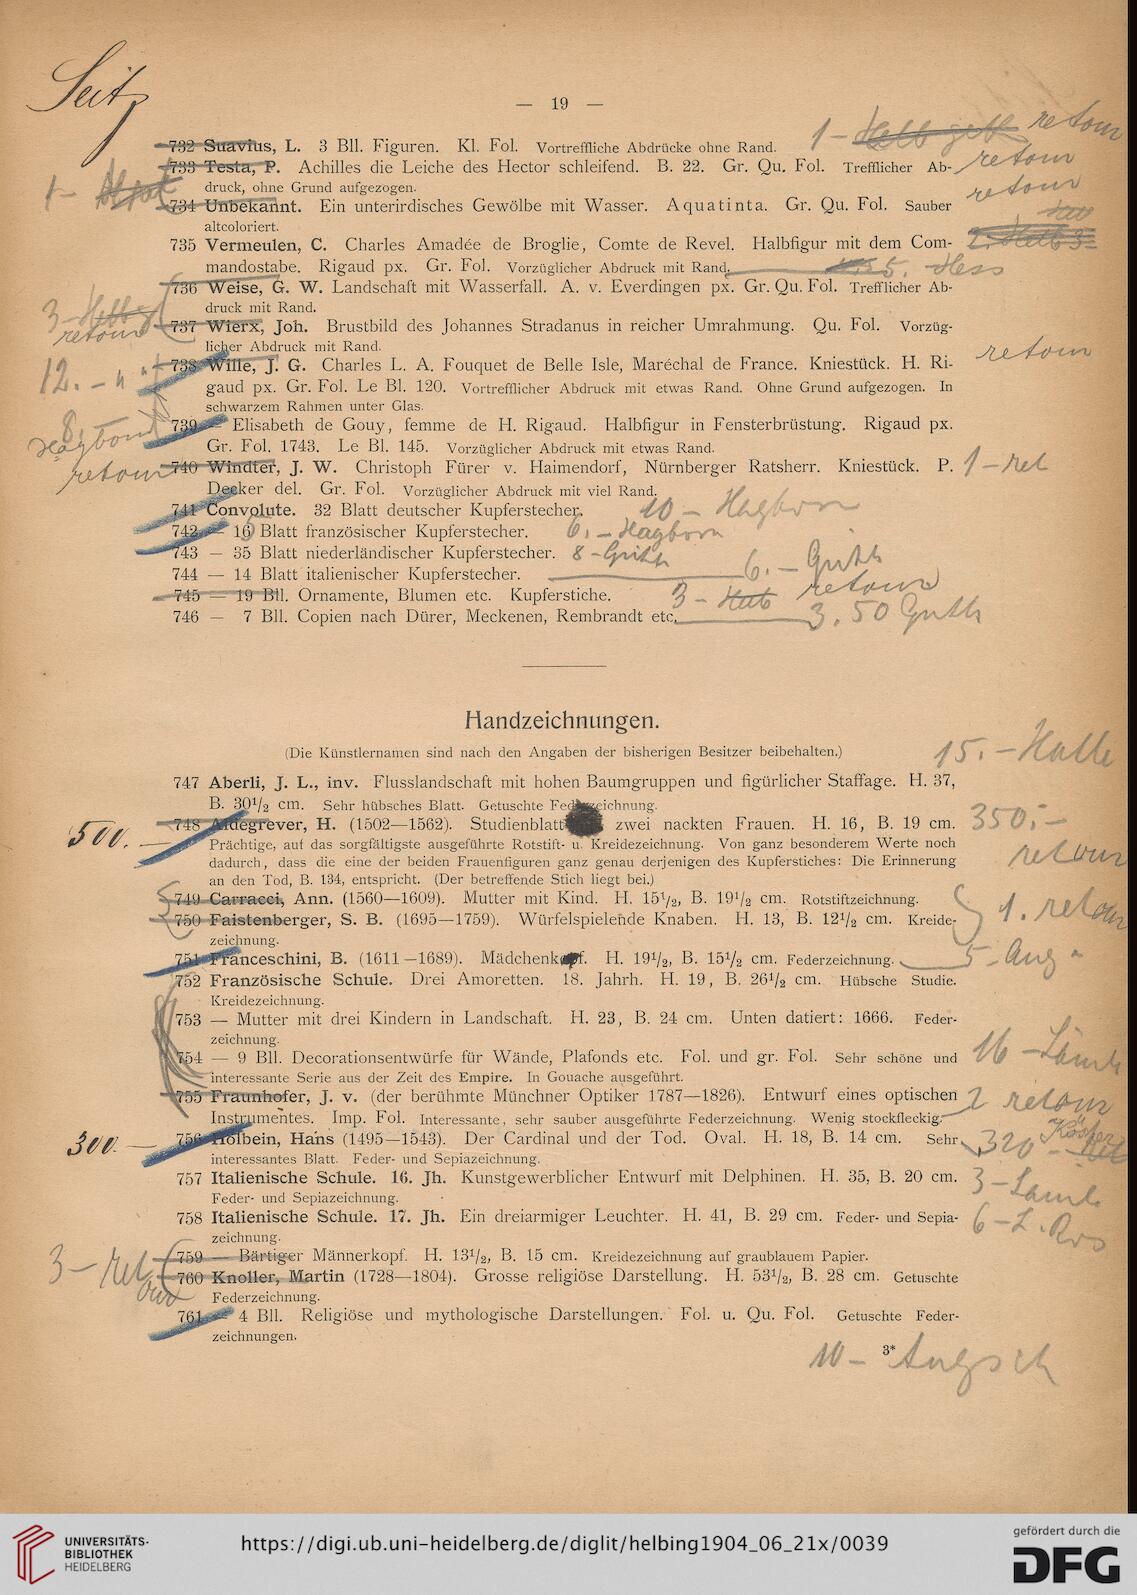 Seitz
— 19 —
1 – retour
732 Suavius, L. 3 Bll. Figuren. Kl. Fol. Vortreffliche Abdrücke ohne Rand.
733 Testa, P. Achilles die Leiche des Hector schleifend. B. 22. Gr. Qu. Fol. Trefflicher Ab- retour
druck, ohne Grund aufgezogen.
1 –
734 Unbekannt. Ein unterirdisches Gewölbe mit Wasser. Aquatinta. Gr. Qu. Fol. Sauber retour
altcoloriert.
735 Vermeulen, C. Charles Amadée de Broglie, Comte de Revel. Halbfigur mit dem Com-
mandostabe. Rigaud px. Gr. Fol. Vorzüglicher Abdruck mit Rand. 5. Hess
736 Weise, G. W. Landschaft mit Wasserfall. A. v. Everdingen px. Gr. Qu. Fol. Trefflicher Ab-
druck mit Rand.
3 – retour
737 Wierx, Joh. Brustbild des Johannes Stradanus in reicher Umrahmung. Qu. Fol. Vorzüg-
licher Abdruck mit Rand.
12. –
738 Wille, J. G. Charles L. A. Fouquet de Belle Isle, Maréchal de France. Kniestück. H. Ri- retour
gaud px. Gr. Fol. Le Bl. 120. Vortrefflicher Abdruck mit etwas Rand. Ohne Grund aufgezogen. In
schwarzem Rahmen unter Glas.
8. –
739 — Elisabeth de Gouy, femme de H. Rigaud. Halbfigur in Fensterbrüstung. Rigaud px.
Gr. Fol. 1743. Le Bl. 145. Vorzüglicher Abdruck mit etwas Rand.
retour 740 Windter, J. W. Christoph Fürer v. Haimendorf, Nürnberger Ratsherr. Kniestück. P. 1 – ret
Decker del. Gr. Fol. Vorzüglicher Abdruck mit viel Rand.
741 Convolute. 32 Blatt deutscher Kupferstecher. 10 – Hagborn
742 — 16 Blatt französischer Kupferstecher. 6. – Hagborn
743 — 35 Blatt niederländischer Kupferstecher. 8 –
744 — 14 Blatt italienischer Kupferstecher. 6. –
745 — 19 Bll. Ornamente, Blumen etc. Kupferstiche. 3 – retour
746 — 7 Bll. Copien nach Dürer, Meckenen, Rembrandt etc. 3.50
Handzeichnungen.
(Die Künstlernamen sind nach den Angaben der bisherigen Besitzer beibehalten.)
15. – Halle
747 Aberli, J. L., inv. Flusslandschaft mit hohen Baumgruppen und figürlicher Staffage. H. 37,
B. 30½ cm. Sehr hübsches Blatt. Getuschte Federzeichnung.
500. —
748 Aldegrever, H. (1502—1562). Studienblatt zwei nackten Frauen. H. 16, B. 19 cm. 350. –
Prächtige, auf das sorgfältigste ausgeführte Rotstift- u. Kreidezeichnung. Von ganz besonderem Werte noch retour
dadurch, dass die eine der beiden Frauenfiguren ganz genau derjenigen des Kupferstiches: Die Erinnerung
an den Tod, B. 134, entspricht. (Der betreffende Stich liegt bei.)
749 Carracci, Ann. (1560—1609). Mutter mit Kind. H. 15½, B. 19½ cm. Rotstiftzeichnung.
750 Faistenberger, S. B. (1695—1759). Würfelspielende Knaben. H. 13, B. 12½ cm. Kreide- 1. retour
zeichnung.
751 Franceschini, B. (1611—1689). Mädchenkopf. H. 19½, B. 15½ cm. Federzeichnung. 5 –
752 Französische Schule. Drei Amoretten. 18. Jahrh. H. 19, B. 26½ cm. Hübsche Studie.
Kreidezeichnung.
753 — Mutter mit drei Kindern in Landschaft. H. 23, B. 24 cm. Unten datiert: 1666. Feder-
zeichnung.
754 — 9 Bll. Decorationsentwürfe für Wände, Plafonds etc. Fol. und gr. Fol. Sehr schöne und 16 –
interessante Serie aus der Zeit des Empire. In Gouache ausgeführt.
755 Fraunhofer, J. v. (der berühmte Münchner Optiker 1787—1826). Entwurf eines optischen
Instrumentes. Imp. Fol. Interessante, sehr sauber ausgeführte Federzeichnung. Wenig stockfleckig. 2 retour
300. —
756 Holbein, Hans (1495—1543). Der Cardinal und der Tod. Oval. H. 18, B. 14 cm. Sehr 320 –
interessantes Blatt. Feder- und Sepiazeichnung.
757 Italienische Schule. 16. Jh. Kunstgewerblicher Entwurf mit Delphinen. H. 35, B. 20 cm. 3 –
Feder- und Sepiazeichnung.
758 Italienische Schule. 17. Jh. Ein dreiarmiger Leuchter. H. 41, B. 29 cm. Feder- und Sepia- 6 –
zeichnung.
3 – retour
759 — Bärtiger Männerkopf. H. 13½, B. 15 cm. Kreidezeichnung auf graublauem Papier.
760 Knoller, Martin (1728—1804). Grosse religiöse Darstellung. H. 53½, B. 28 cm. Getuschte
Federzeichnung.
761 — 4 Bll. Religiöse und mythologische Darstellungen. Fol. u. Qu. Fol. Getuschte Feder-
zeichnungen.
3*
10 –
UNIVERSITÄTS-
BIBLIOTHEK
HEIDELBERG
https://digi.ub.uni-heidelberg.de/diglit/helbing1904_06_21x/0039
gefördert durch die
DFG